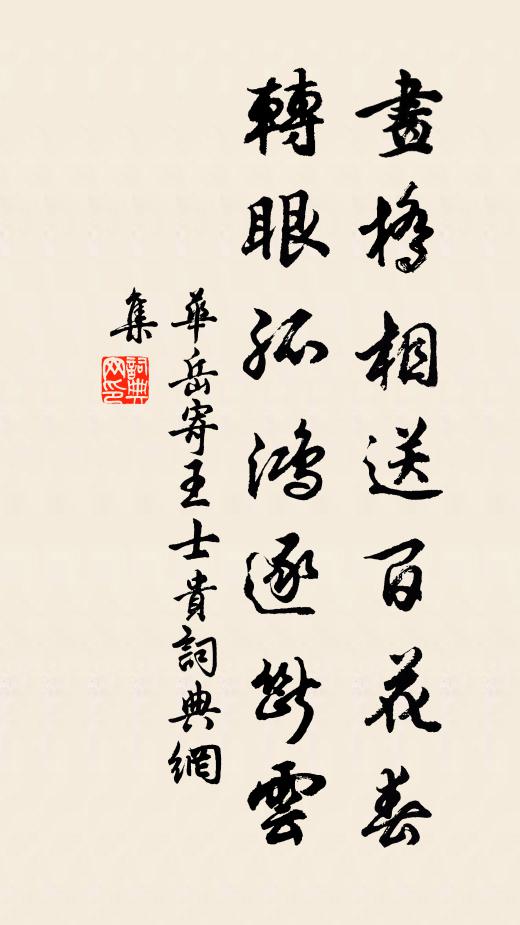 畫橋相送百花春
轉眼孤鴻逐斷雲
華岳寄王士貴詞典網
集
詞典網印